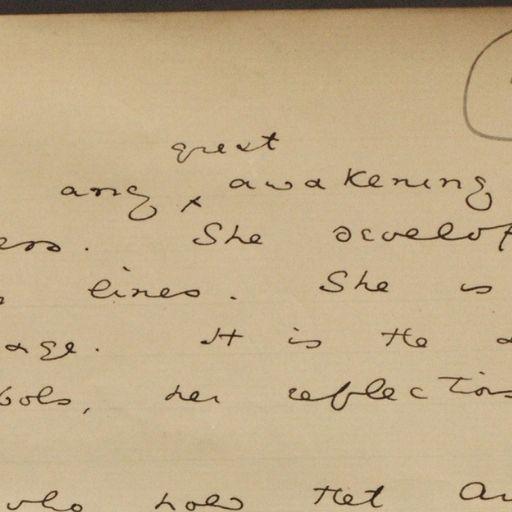 great
any awakening
ess. She develop
lines. She is
age. It is the
bols, her reflection
who hold that